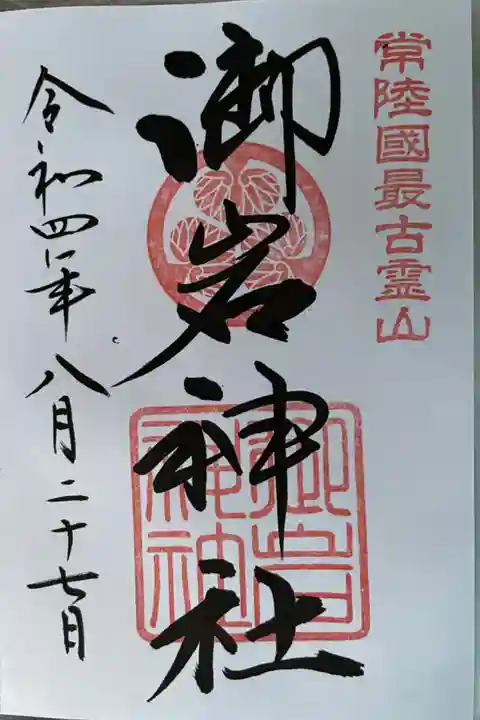 常陸國最古霊山
御岩神社
御岩神社
令和四年八月二十七日